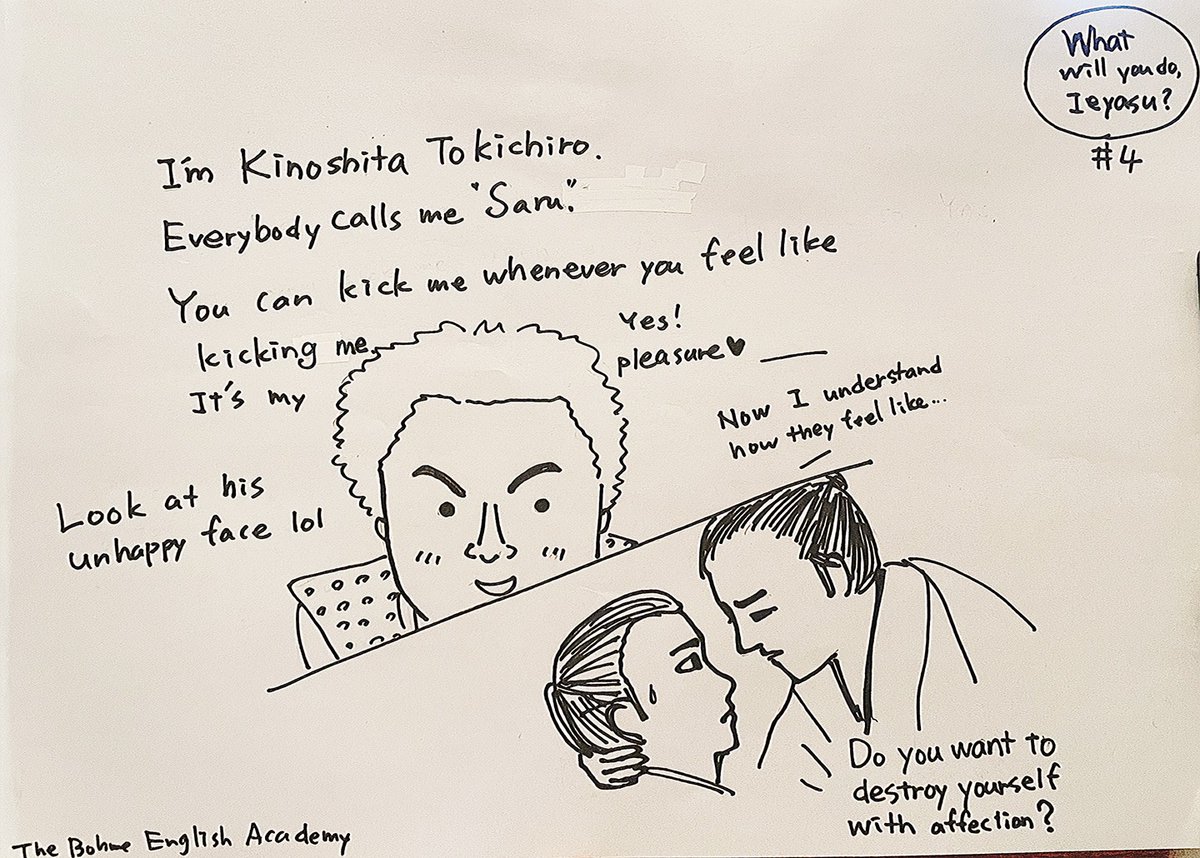 What
will you do,
Ieyasu?
#4
I'm Kinoshita Tokichiro.
Everybody calls me "Saru."
You can kick me whenever you feel like
kicking me.
It's my
Yes!
pleasure♥
Now I understand
how they feel like...
Look at his
unhappy face lol
Do you want to
destroy yourself
with affection?
The Bohme English Academy